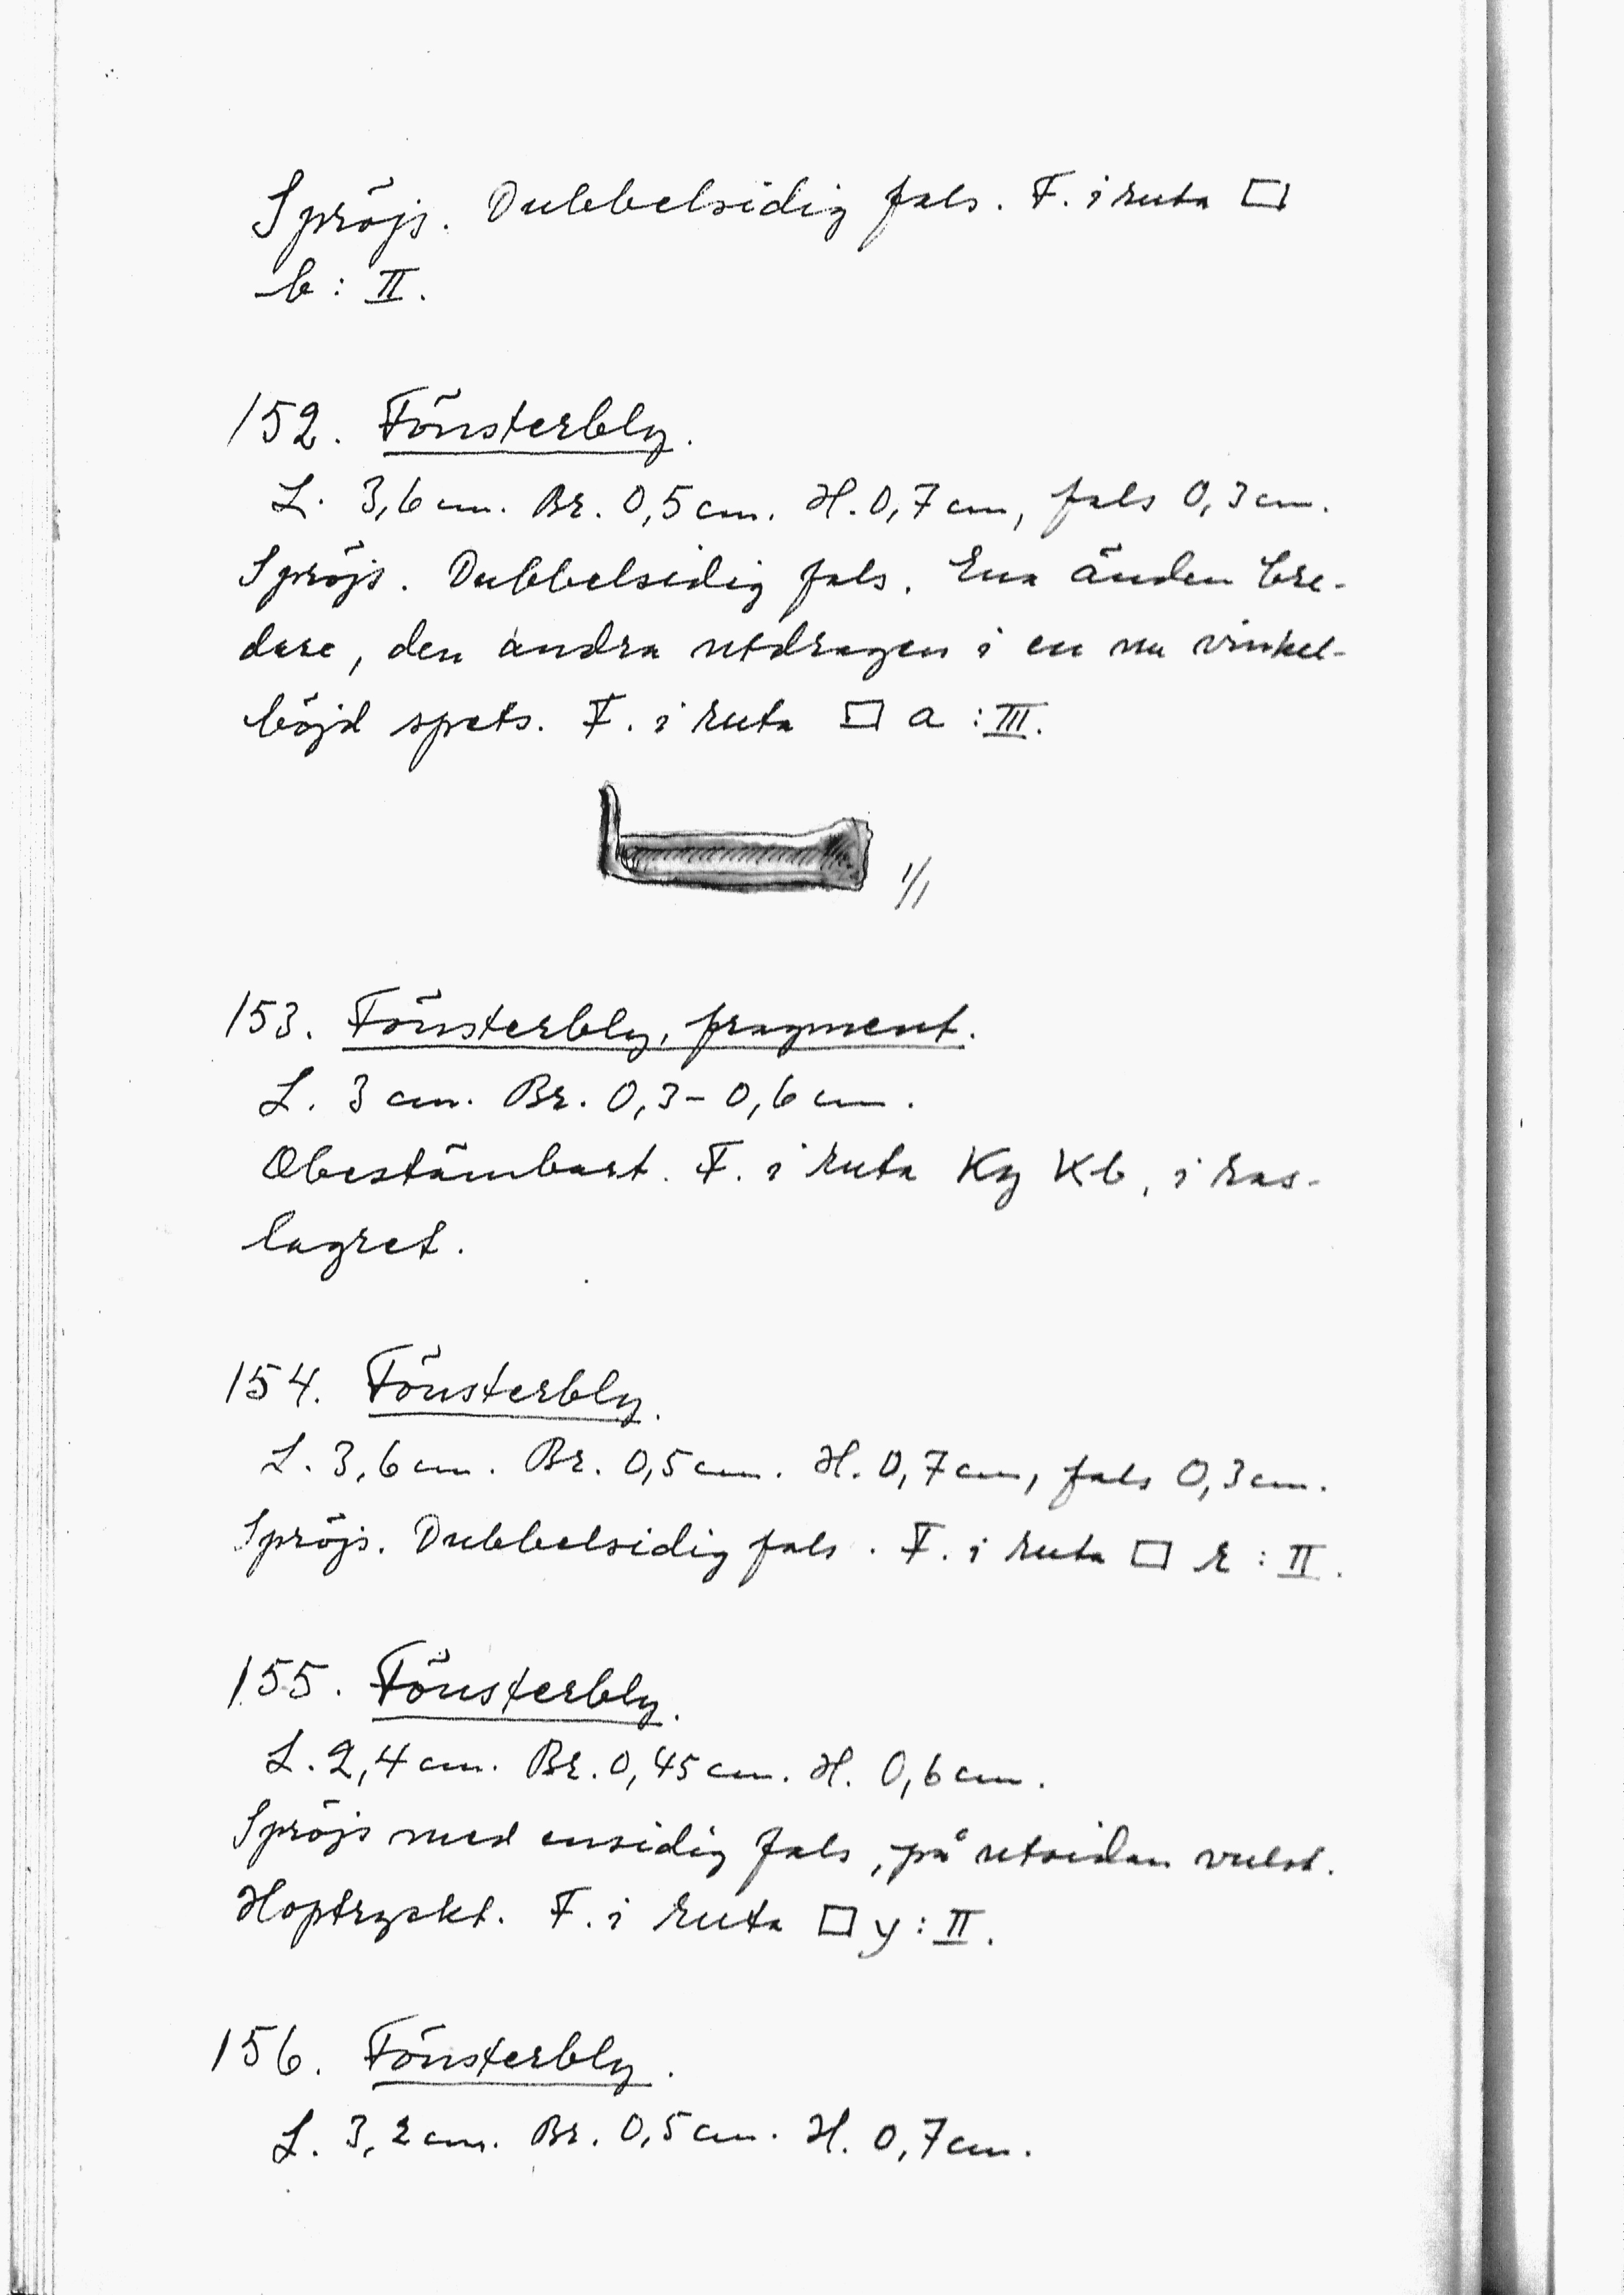 Spröjs. Dubbelsidig fals. F. i ruta □
b : II.
152. Fönsterbly.
L. 3,6 cm. Br. 0,5 cm. H. 0,7 cm, fals 0,3 cm.
Spröjs. Dubbelsidig fals. Ena änden bre-
dare, den andra utdragen i en nu vinkel-
böjd spets. F. i ruta □ a : III.
1/1
153. Fönsterbly, fragment.
L. 3 cm. Br. 0,3 - 0,6 cm.
Obestämbart. F. i ruta Ky Kb, i ras-
lagret.
154. Fönsterbly.
L. 3,6 cm. Br. 0,5 cm. H. 0,7 cm, fals 0,3 cm.
Spröjs. Dubbelsidig fals. F. i ruta □ r : II.
155. Fönsterbly.
L. 2,4 cm. Br. 0,45 cm. H. 0,6 cm.
Spröjs med ensidig fals, på utsidan vulst.
Hoptryckt. F. i ruta □ y : II.
156. Fönsterbly.
L. 3,2 cm. Br. 0,5 cm. H. 0,7 cm.